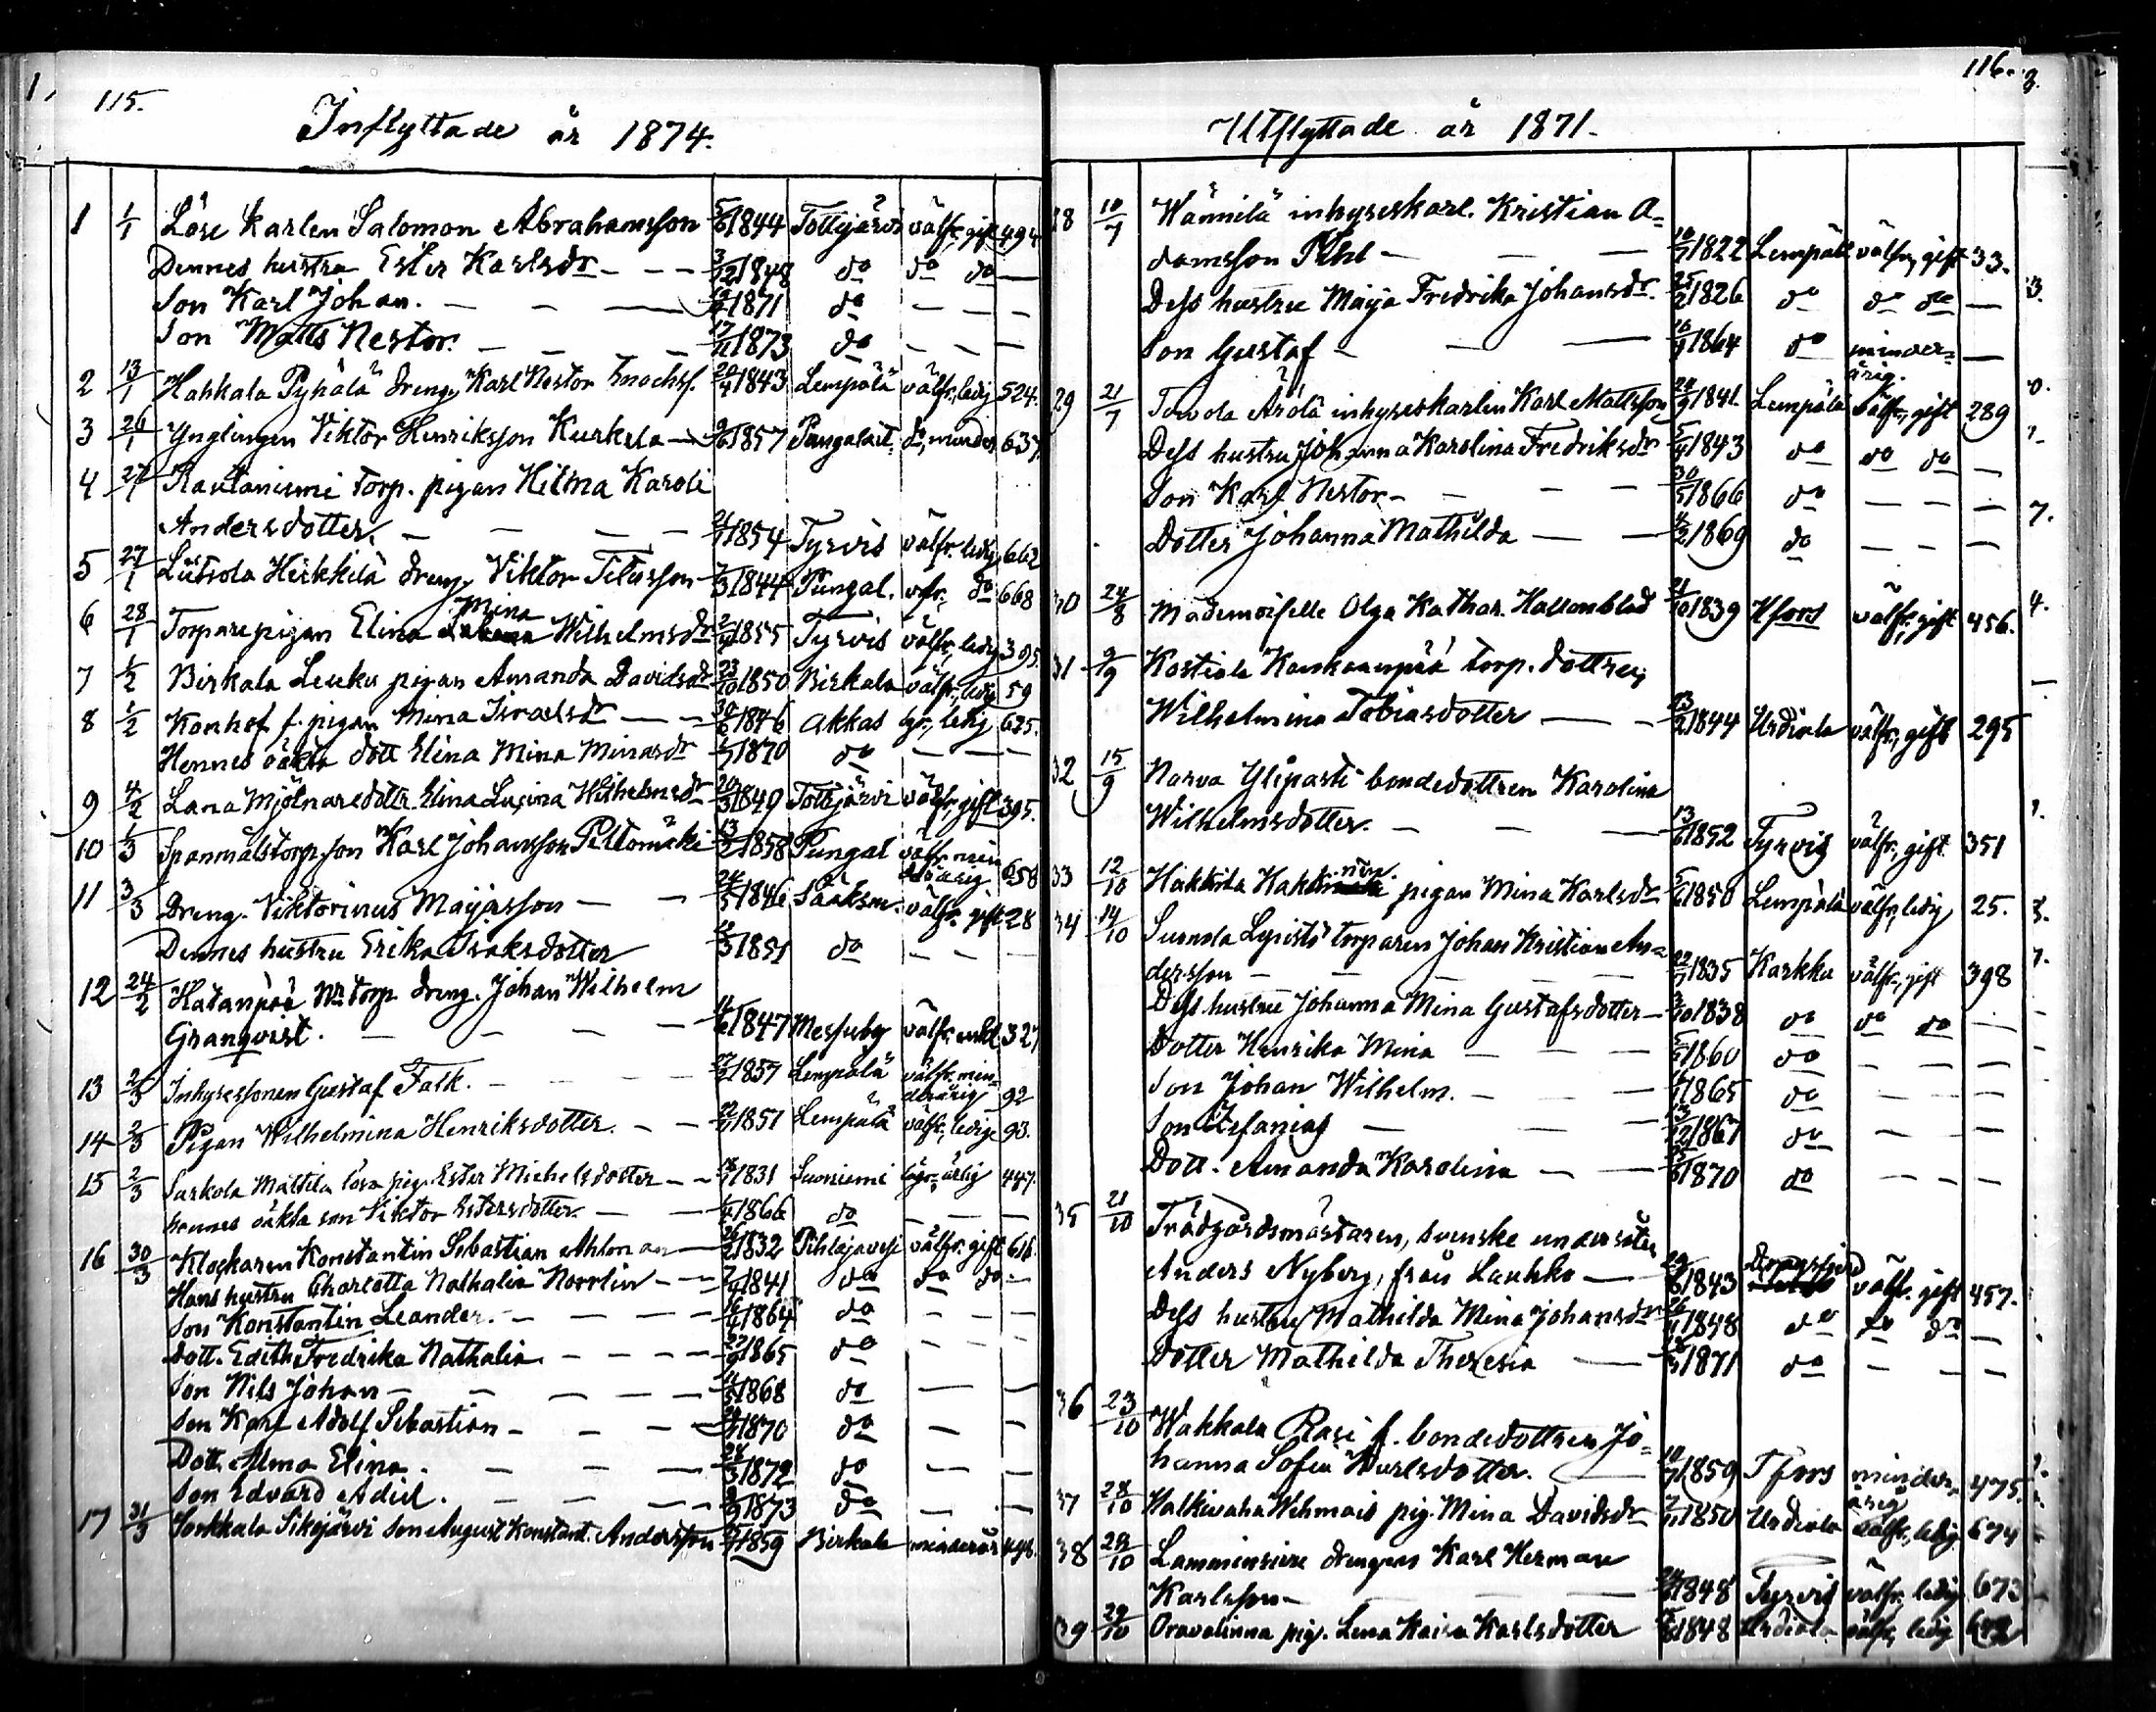 115.
Inflyttade år 1874.
1 1/1 Löse karlen Salomon Abrahamsson 5/6 1844 Tottijärvi välfr. gift 494
Dennes hustru Ester Karlsdr — — — 3/12 1848 do do do —
Son Karl Johan. — — — 1871 do — — —
Son Matts Nestor. — — — 17/11 1873 do — — —
2 13/1 Hahkala Pyhälä dreng. Karl Nestor Enochss. 20/4 1843 Lempälä välfr., ledig 524.
3 26/1 Ynglingen Viktor Henriksson Kurkela — 9/6 1857 Pungalait. do, minder 637.
4 27/1 Rautaniemi torp. pigan Hilma Karoli
Andersdotter. — — — — 21/1 1854 Tyrvis välfr. ledig 662
5 27/1 Liitsola Heikkilä dreng. Viktor Titusson 7/3 1844 Pungal. vfr., do 668
6 28/1 Torparepigan Elina Mina Wilhelmsdr 2/4 1855 Tyrvis välfr., ledig 395.
7 1/2 Birkala Leuku pigan Amanda Davidsdr 23/10 1850 Birkala välfr., ledig 59
8 1/2 Konhof f. pigan Mina Israelsdr — — 30/6 1846 Akkas lgr., ledig 625.
Hennes oäkta dott Elina Mina Minasdr 1870 do — — —
9 4/2 Lana Mjölnaredottr. Elina Lusina Wilhelmsdr 20/3 1849 Tottijärvi välfr. gift 395.
10 1/3 Spanmålstorp. son Karl Johansson Peltomäki 13/2 1858 Pungal välfr. min
derårig. 658
11 3/3 Dreng. Viktorinus Maijasson — — 24/5 1846 Sääksm. välfr. gift 28
Dennes hustru Erika Isaksdotter 1851 do — — —
12 24/2 Hatanpää Nr torp dreng. Johan Wilhelm
Granqvist. — — — — 1847 Messuby välfr. enkl. 327
13 2/3 Inhysessonen Gustaf Falk. — — — 1857 Lempälä välfr. min-
derårig 92
14 2/3 Pigan Wilhelmina Henriksdotter. — — 22/5 1851 Lempälä välfr., ledig 93.
15 2/3 Sarkola Mattila lösa pig. Ester Michelsdotter — — 1831 Suoniemi lägr., ärlig 447.
hennes oäkta son Viktor Estersdotter. — — 1866 do — — —
16 30/3 Klockaren Konstantin Sebastian Ahlman — 26/2 1832 Pihlajavesi välfr. gift 616.
Hans hustru Charlotta Nathalia Norrlin — — 7/4 1841 do do do —
Son Konstantin Leander. — — — — 16/4 1864 do — — —
Dott. Edith Fredrika Nathalia. — — — — 22/9 1865 do — — —
Son Nils Johan — — — — — 11/5 1868 do — —
Son Karl Adolf Sebastian — — — 1870 do — —
Dott. Alma Elina. — — — 28/3 1872 do — —
Son Edvard Adiel. — — — — 1873 do — —
17 31/3 Sorkkala Pikojärvi son August Konstant. Andersson 1859 Birkala minderår 448.
116.
Utflyttade år 1871.
28 10/7 Wännilä inhyseskarl. Kristian A-
damsson Pihl — — — 1822 Lempäll välfr., gift 33.
Dess hustru Maija Fredrika Johansdr. 25/2 1826 do do do —
Son Gustaf — — — 16/9 1864 do minder-
årig. —
29 21/7 Tavola Ärölä inhyseskarlen Karl Mattsson 24/9 1841 Lempälä välfr., gift 289
Dess hustru Johanna Karolina Fredriksdr 5/4 1843 do do do —
Son Karl Nestor — — — 30/5 1866 do — — —
Dotter Johanna Mathilda — — 1869 do — — —
30 24/8 Mademoiselle Olga Kathar. Hallonblad 21/10 1839 Hfors välfr., gift 456.
31 9/9 Kostiala Kankaanpää torp. dottren
Wilhelmina Tobiasdotter — — 13/2 1844 Urdiala välfr., gift 295
32 15/9 Narva Ylipasti bondedottren Karolina
Wilhelmsdotter. — — — 13/6 1852 Tyrvis välfr., gift 351
33 12/10 Hakkila pigan Mina Karlsdr 5/6 1850 Lempälä välfr., ledig 25.
34 14/10 Suomela torparen Johan Kristian An-
dersson — — — — 22/7 1835 Karkku välfr., gift 398
Dess hustru Johanna Mina Gustafsdotter — 3/10 1838 do do do —
Dotter Henrika Mina — — — 1860 do — — —
Son Johan Wilhelm. — — — 1865 do — — —
Son Zefanias — — — 13/12 1867 do — — —
Dott. Amanda Karolina — — 1870 do — — —
35 21/10 Trädgårdsmästaren, svenske undersåten
Anders Nyberg, från Laukko — 1843 välfr. gift 457.
Dess hustru Mathilda Mina Johansdr 1848 do do do —
Dotter Mathilda Theresia — 1871 do — — —
36 23/10 Wakkala Rasi f. bondedottren Jo-
hanna Sofia Karlsdotter. — 10/7 1859 Tfors minder-
årig 475.
37 28/10 Halkivaha Wehmais pig. Mina Davidsdr 7/11 1850 Urdiala välfr., ledig 674
38 29/10 Lamminsivu drengen Karl Herman
Karlsson — — — 1848 Tyrvis välfr. ledig 673
39 29/10 Oravalinna pig. Lena Kaisa Karlsdotter 1848 Urdiala välfr. ledig